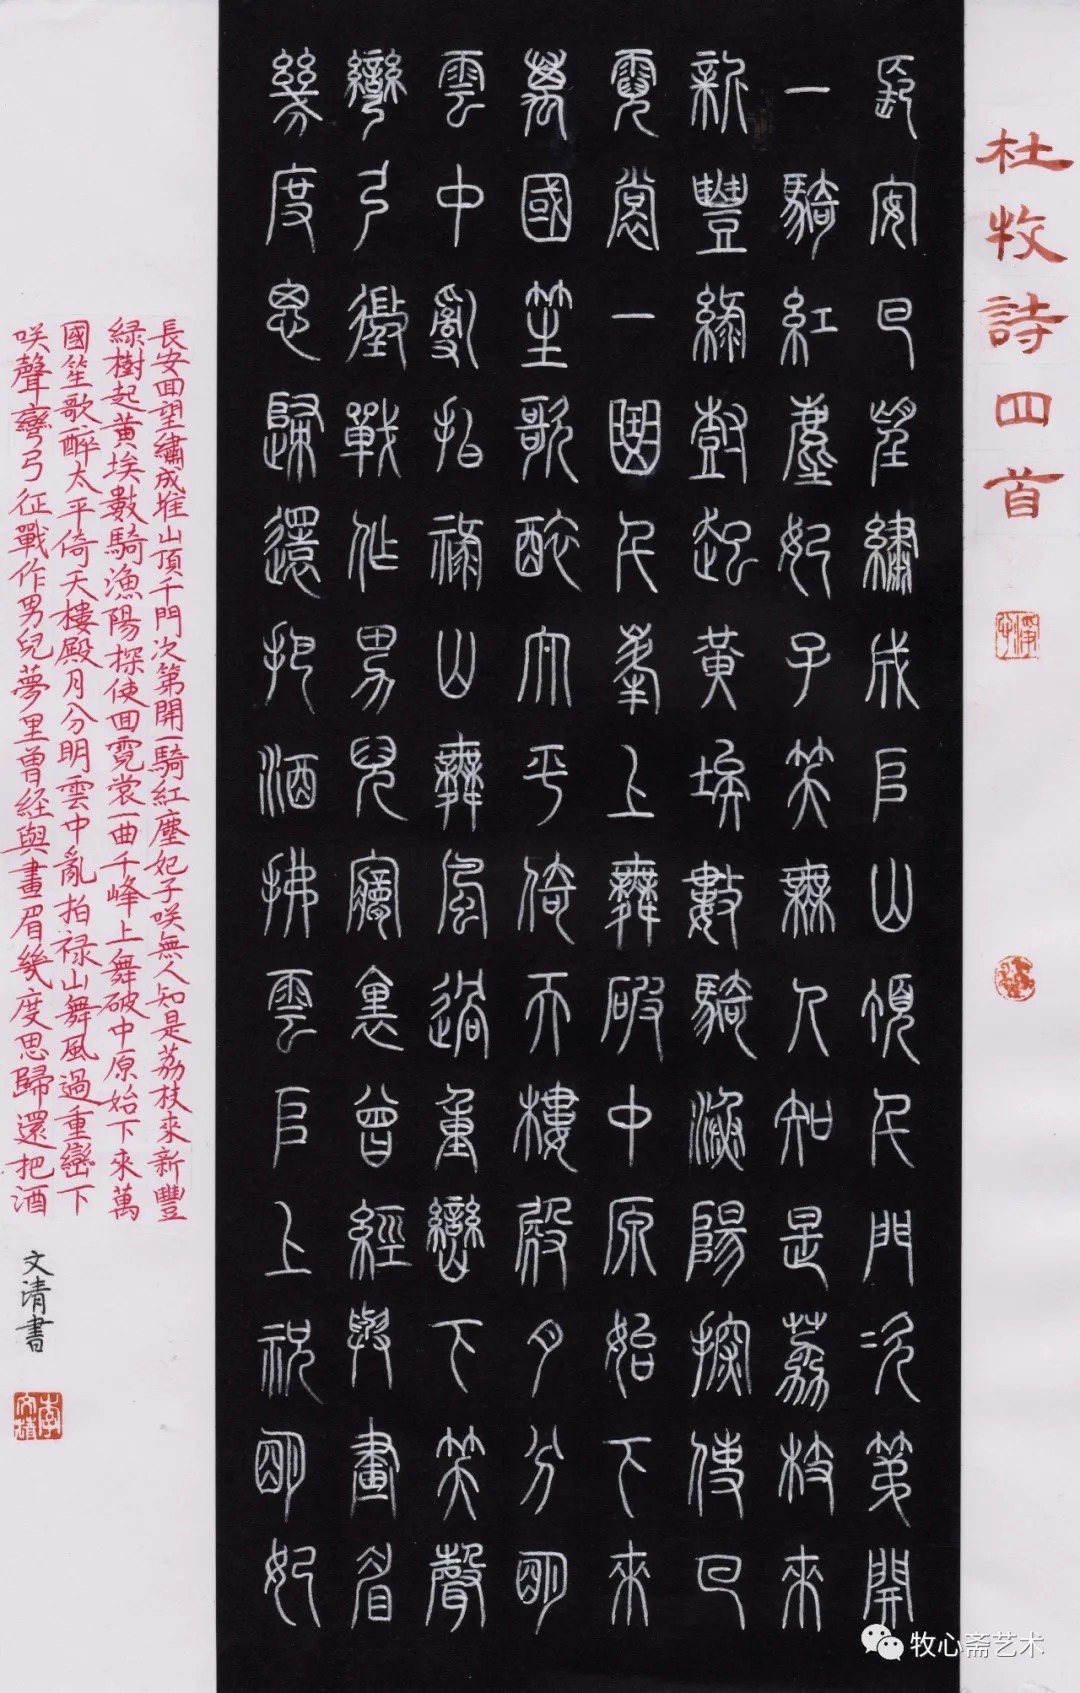 杜牧詩四首
長安回望繡成堆山頂千門次第開
一騎紅塵妃子笑無人知是荔枝來
新豐綠樹起黃埃數騎漁陽探使回
霓裳一曲千峯上舞破中原始下來
萬國笙歌醉太平倚天樓殿月分明
雲中亂拍祿山舞風過重巒下笑聲
彎弓征戰作男兒夢裏曾經與畫眉
幾度思歸還把酒拂雲堆上祝明妃
長安回望繡成堆山頂千門次第開一騎紅塵妃子咲無人知是荔枝來新豐
緑樹起黃埃數騎漁陽探使回霓裳一曲千峰上舞破中原始下來萬
國笙歌醉太平倚天樓殿月分明雲中亂拍禄山舞風過重巒下
咲聲彎弓征戰作男兒夢里曾經與畫眉幾度思歸還把酒
文清書
牧心斋艺术